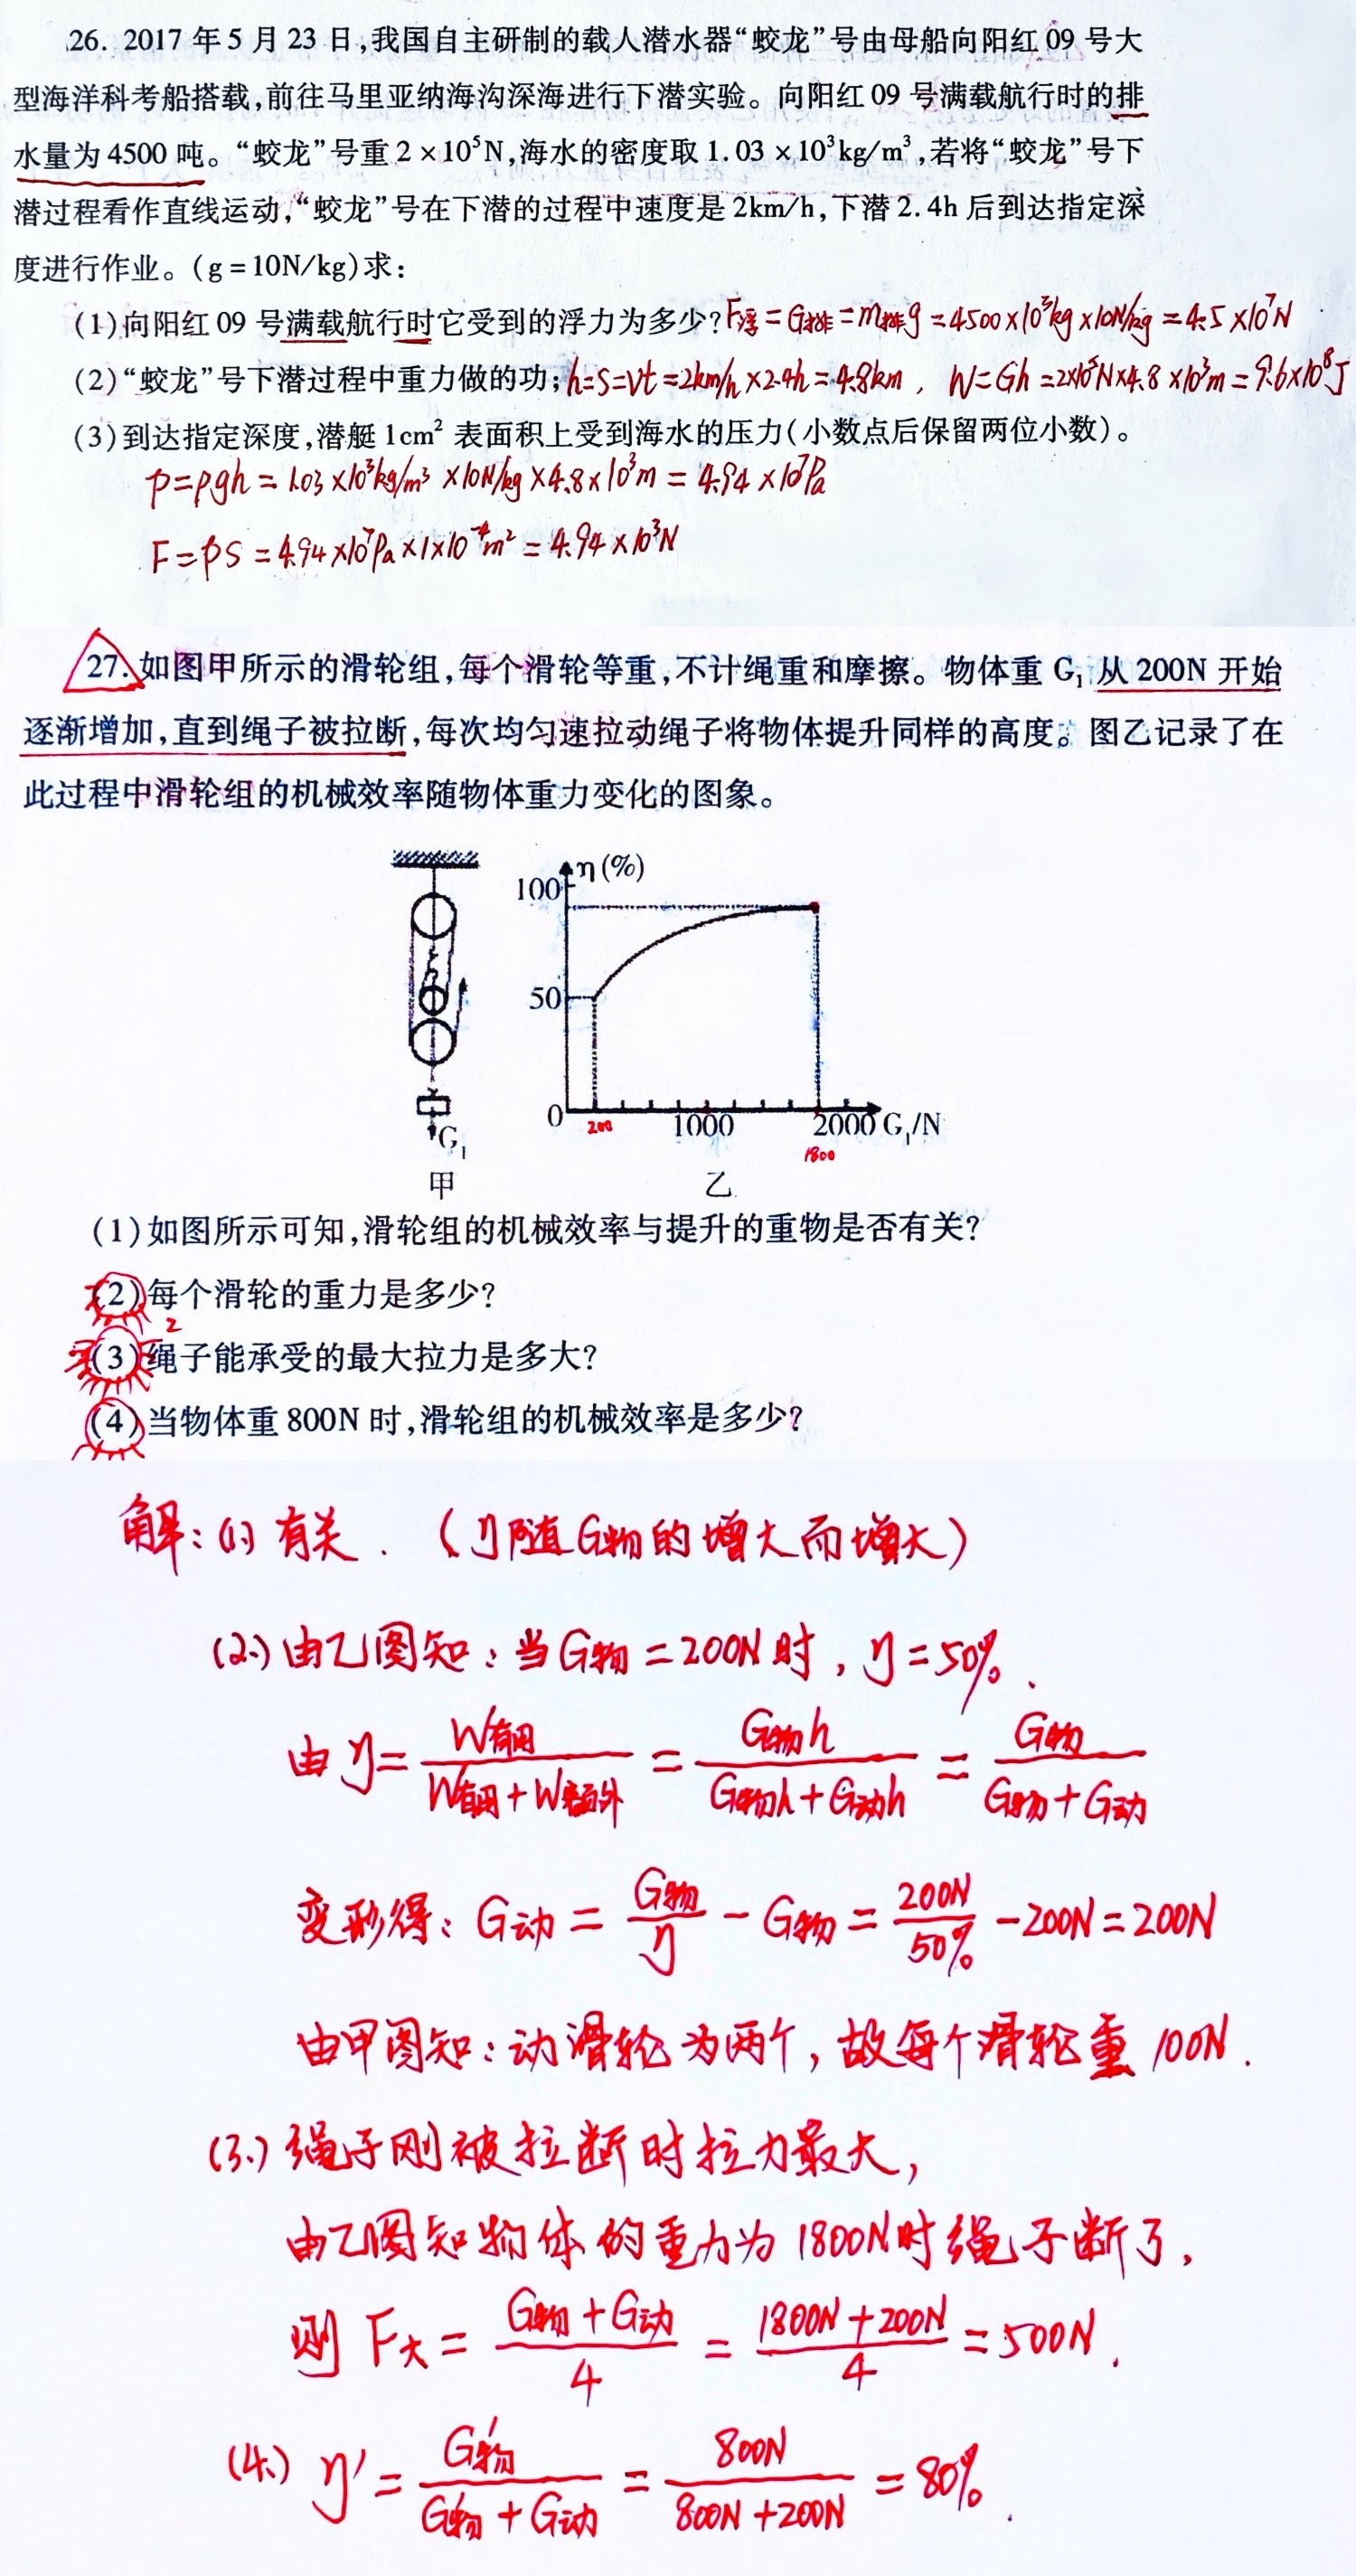 26. 2017年5月23日,我国自主研制的载人潜水器“蛟龙”号由母船向阳红09号大
型海洋科考船搭载,前往马里亚纳海沟深海进行下潜实验。向阳红09号满载航行时的排
水量为4500吨。“蛟龙”号重2×10⁵N,海水的密度取1.03×10³kg/m³,若将“蛟龙”号下
潜过程看作直线运动,“蛟龙”号在下潜的过程中速度是2km/h,下潜2.4h后到达指定深
度进行作业。(g=10N/kg)求:
(1)向阳红09号满载航行时它受到的浮力为多少? F浮=G排=m排g=4500×10³kg×10N/kg=4.5×10⁷N
(2)“蛟龙”号下潜过程中重力做的功; h=S=Vt=2km/h×2.4h=4.8km, W=Gh=2×10⁵N×4.8×10³m=9.6×10⁸J
(3)到达指定深度,潜艇1cm²表面积上受到海水的压力(小数点后保留两位小数)。
P=ρgh=1.03×10³kg/m³×10N/kg×4.8×10³m=4.94×10⁷Pa
F=PS=4.94×10⁷Pa×1×10⁻⁴m²=4.94×10³N
27.如图甲所示的滑轮组,每个滑轮等重,不计绳重和摩擦。物体重G₁从200N开始
逐渐增加,直到绳子被拉断,每次均匀速拉动绳子将物体提升同样的高度。图乙记录了在
此过程中滑轮组的机械效率随物体重力变化的图象。
η(%)
100
50
0
200
1000
2000 G₁/N
1800
G₁
甲
乙
(1)如图所示可知,滑轮组的机械效率与提升的重物是否有关?
(2)每个滑轮的重力是多少?
2
(3)绳子能承受的最大拉力是多大?
(4)当物体重800N时,滑轮组的机械效率是多少?
解:(1)有关.(η随G物的增大而增大)
(2.)由乙图知:当G物=200N时,η=50%.
由η=W有用/(W有用+W额外)=G物h/(G物h+G动h)=G物/(G物+G动)
变形得:G动=G物/η-G物=200N/50%-200N=200N
由甲图知:动滑轮为两个,故每个滑轮重100N.
(3.)绳子刚被拉断时拉力最大,
由乙图知物体的重力为1800N时绳子断了,
则F大=(G物+G动)/4=(1800N+200N)/4=500N.
(4.)η′=G物′/(G物′+G动)=800N/(800N+200N)=80%.